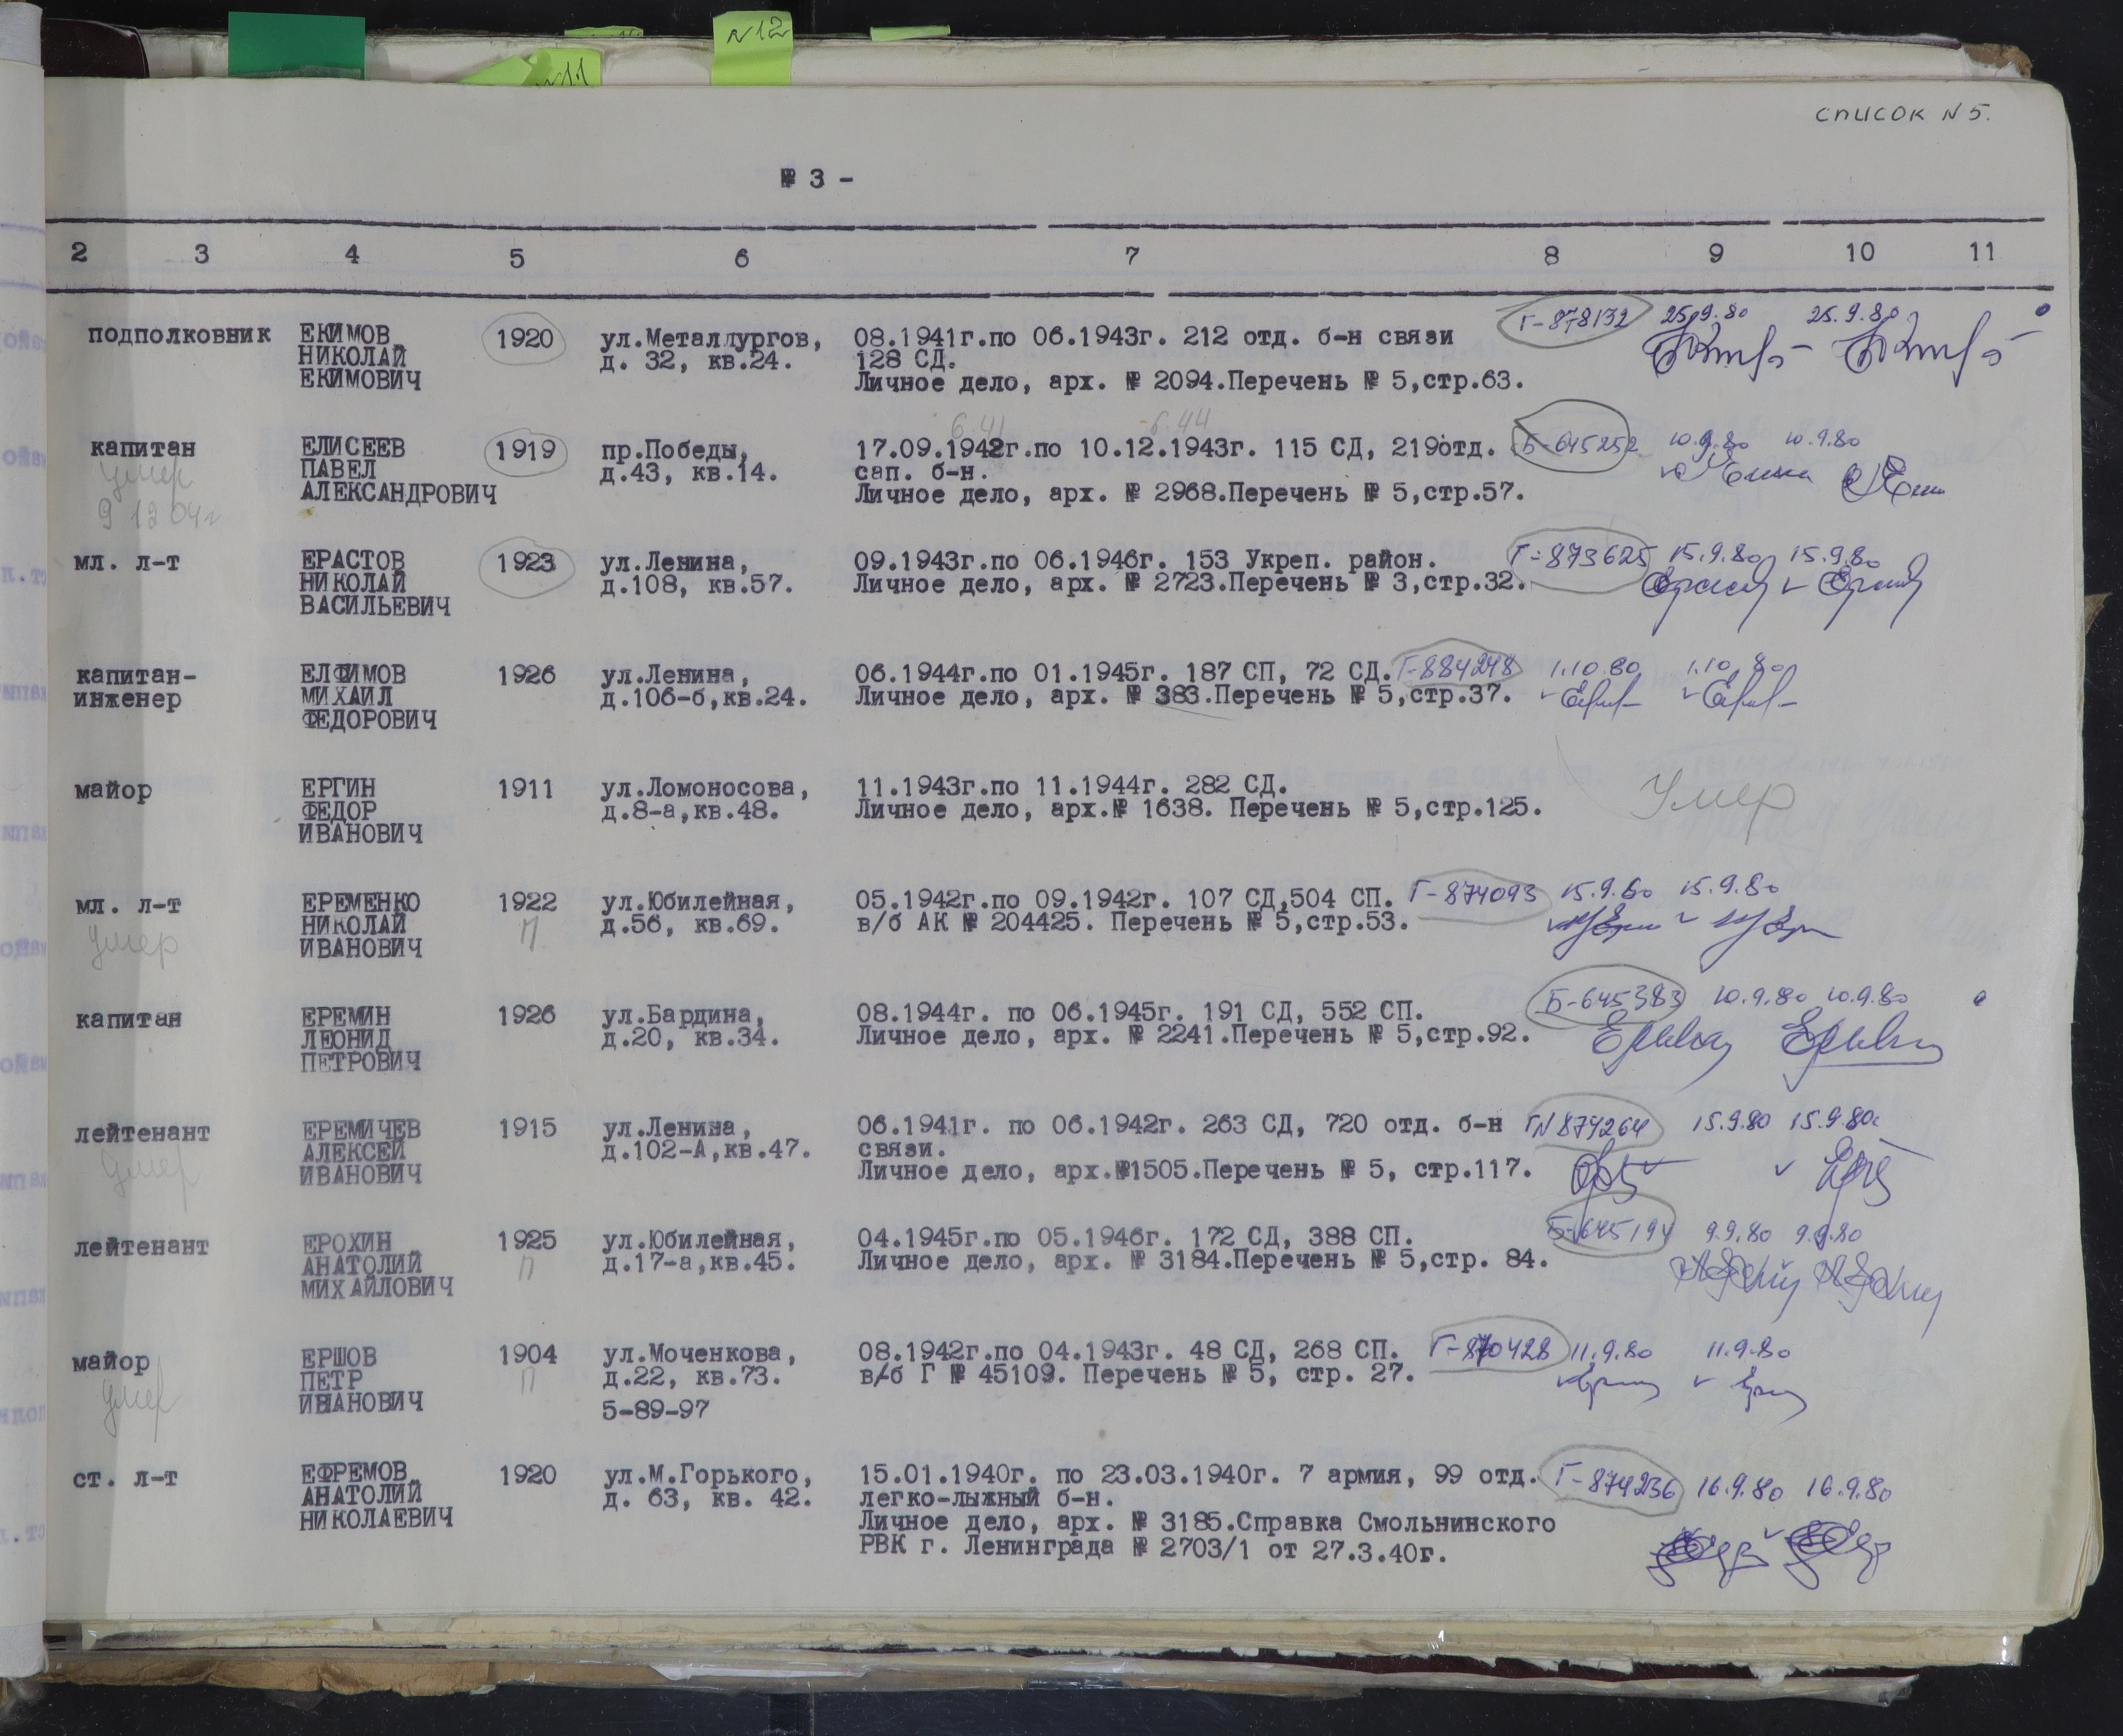 N12
N11
список N 5.
№ 3 -
2 3 4 5 6 7 8 9 10 11
подполковник ЕКИМОВ 1920 ул.Металлургов, 08.1941г.по 06.1943г. 212 отд. б-н связи Г-878132 25.9.80 25.9.80
НИКОЛАЙ д. 32, кв.24. 128 СД.
ЕКИМОВИЧ Личное дело, арх. № 2094.Перечень № 5,стр.63.
6.41 6.44
капитан ЕЛИСЕЕВ 1919 пр.Победы, 17.09.1942г.по 10.12.1943г. 115 СД, 219отд. Б-645252 10.9.80 10.9.80
умер ПАВЕЛ д.43, кв.14. сап. б-н.
9 12 04г АЛЕКСАНДРОВИЧ Личное дело, арх. № 2968.Перечень № 5,стр.57.
мл. л-т ЕРАСТОВ 1923 ул.Ленина, 09.1943г.по 06.1946г. 153 Укреп. район. Г-873625 15.9.80 15.9.80
НИКОЛАЙ д.108, кв.57. Личное дело, арх. № 2723.Перечень № 3,стр.32.
ВАСИЛЬЕВИЧ
капитан- ЕЛФИМОВ 1926 ул.Ленина, 06.1944г.по 01.1945г. 187 СП, 72 СД. Г-884248 1.10.80 1.10.80
инженер МИХАИЛ д.106-б,кв.24. Личное дело, арх. № 383.Перечень № 5,стр.37.
ФЕДОРОВИЧ
майор ЕРГИН 1911 ул.Ломоносова, 11.1943г.по 11.1944г. 282 СД. Умер
ФЕДОР д.8-а,кв.48. Личное дело, арх.№ 1638. Перечень № 5,стр.125.
ИВАНОВИЧ
мл. л-т ЕРЕМЕНКО 1922 ул.Юбилейная, 05.1942г.по 09.1942г. 107 СД,504 СП. Г-874093 15.9.80 15.9.80
умер НИКОЛАЙ П д.56, кв.69. в/б АК № 204425. Перечень № 5,стр.53.
ИВАНОВИЧ
капитан ЕРЕМИН 1926 ул.Бардина, 08.1944г. по 06.1945г. 191 СД, 552 СП. Б-645383 10.9.80 10.9.80
ЛЕОНИД д.20, кв.34. Личное дело, арх. № 2241.Перечень № 5,стр.92.
ПЕТРОВИЧ
лейтенант ЕРЕМИЧЕВ 1915 ул.Ленина, 06.1941г. по 06.1942г. 263 СД, 720 отд. б-н ГN 874264 15.9.80 15.9.80г
умер АЛЕКСЕЙ д.102-А,кв.47. связи.
ИВАНОВИЧ Личное дело, арх.№1505.Перечень № 5, стр.117.
лейтенант ЕРОХИН 1925 ул.Юбилейная, 04.1945г.по 05.1946г. 172 СД, 388 СП. Б-645194 9.9.80 9.9.80
АНАТОЛИЙ П д.17-а,кв.45. Личное дело, арх. № 3184.Перечень № 5,стр. 84.
МИХАЙЛОВИЧ
майор ЕРШОВ 1904 ул.Моченкова, 08.1942г.по 04.1943г. 48 СД, 268 СП. Г-870428 11.9.80 11.9.80
умер ПЕТР П д.22, кв.73. в/б Г № 45109. Перечень № 5, стр. 27.
ИВАНОВИЧ 5-89-97
ст. л-т ЕФРЕМОВ 1920 ул.М.Горького, 15.01.1940г. по 23.03.1940г. 7 армия, 99 отд. Г-874236 16.9.80 16.9.80
АНАТОЛИЙ д. 63, кв. 42. легко-лыжный б-н.
НИКОЛАЕВИЧ Личное дело, арх. № 3185.Справка Смольнинского
РВК г. Ленинграда № 2703/1 от 27.3.40г.